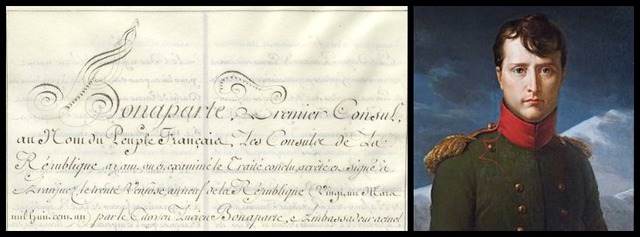 Bonaparte, Premier Consul,
au Nom du Peuple Français, Les Consuls de La
République ayant vu et examiné le Traité conclu, arrêté et signé à
Aranjuez le trente Ventose, an neuf de la République (Vingt, un Mars
mil huit cent un) par le Citoyen Lucien Bonaparte, Ambassadeur actuel